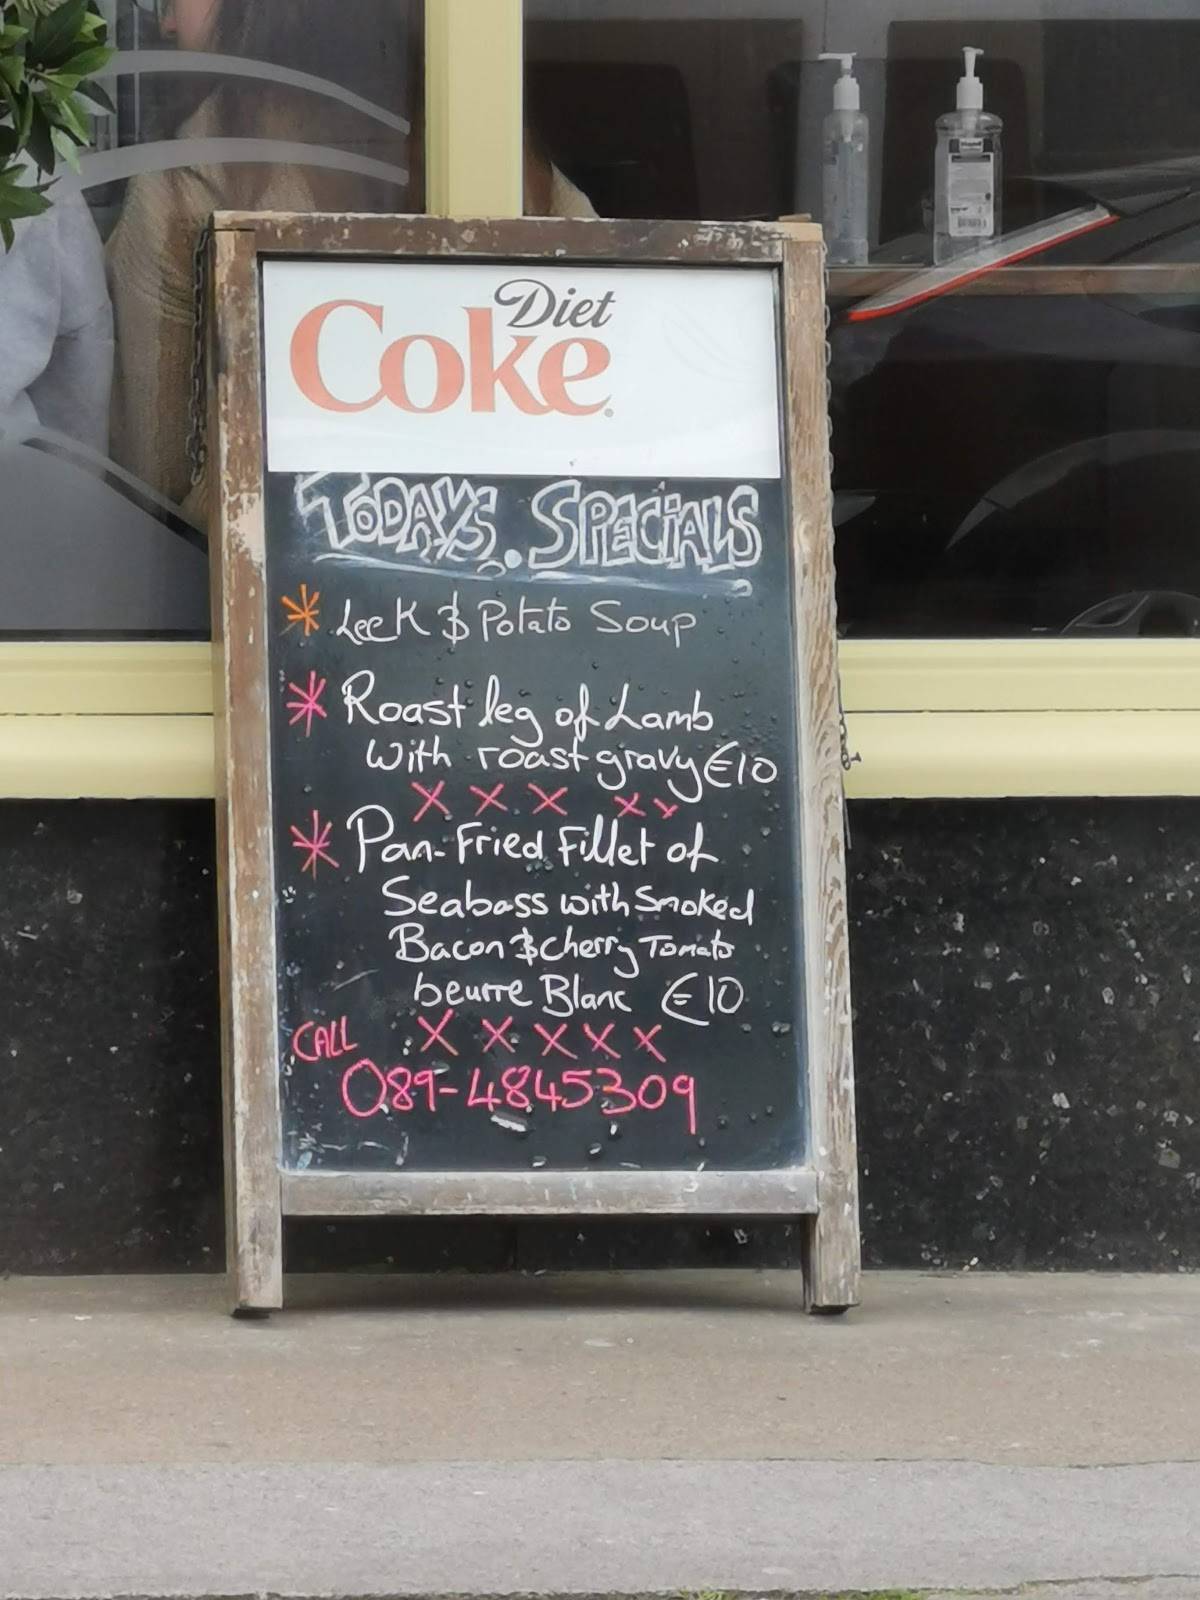 Diet
Coke
TODAYS. SPECIALS
* Leek & Potato Soup
* Roast leg of Lamb
with roast gravy €10
x x x x x
* Pan-Fried Fillet of
Seabass with Smoked
Bacon & cherry Tomato
beurre Blanc €10
CALL x x x x x
089-4845309